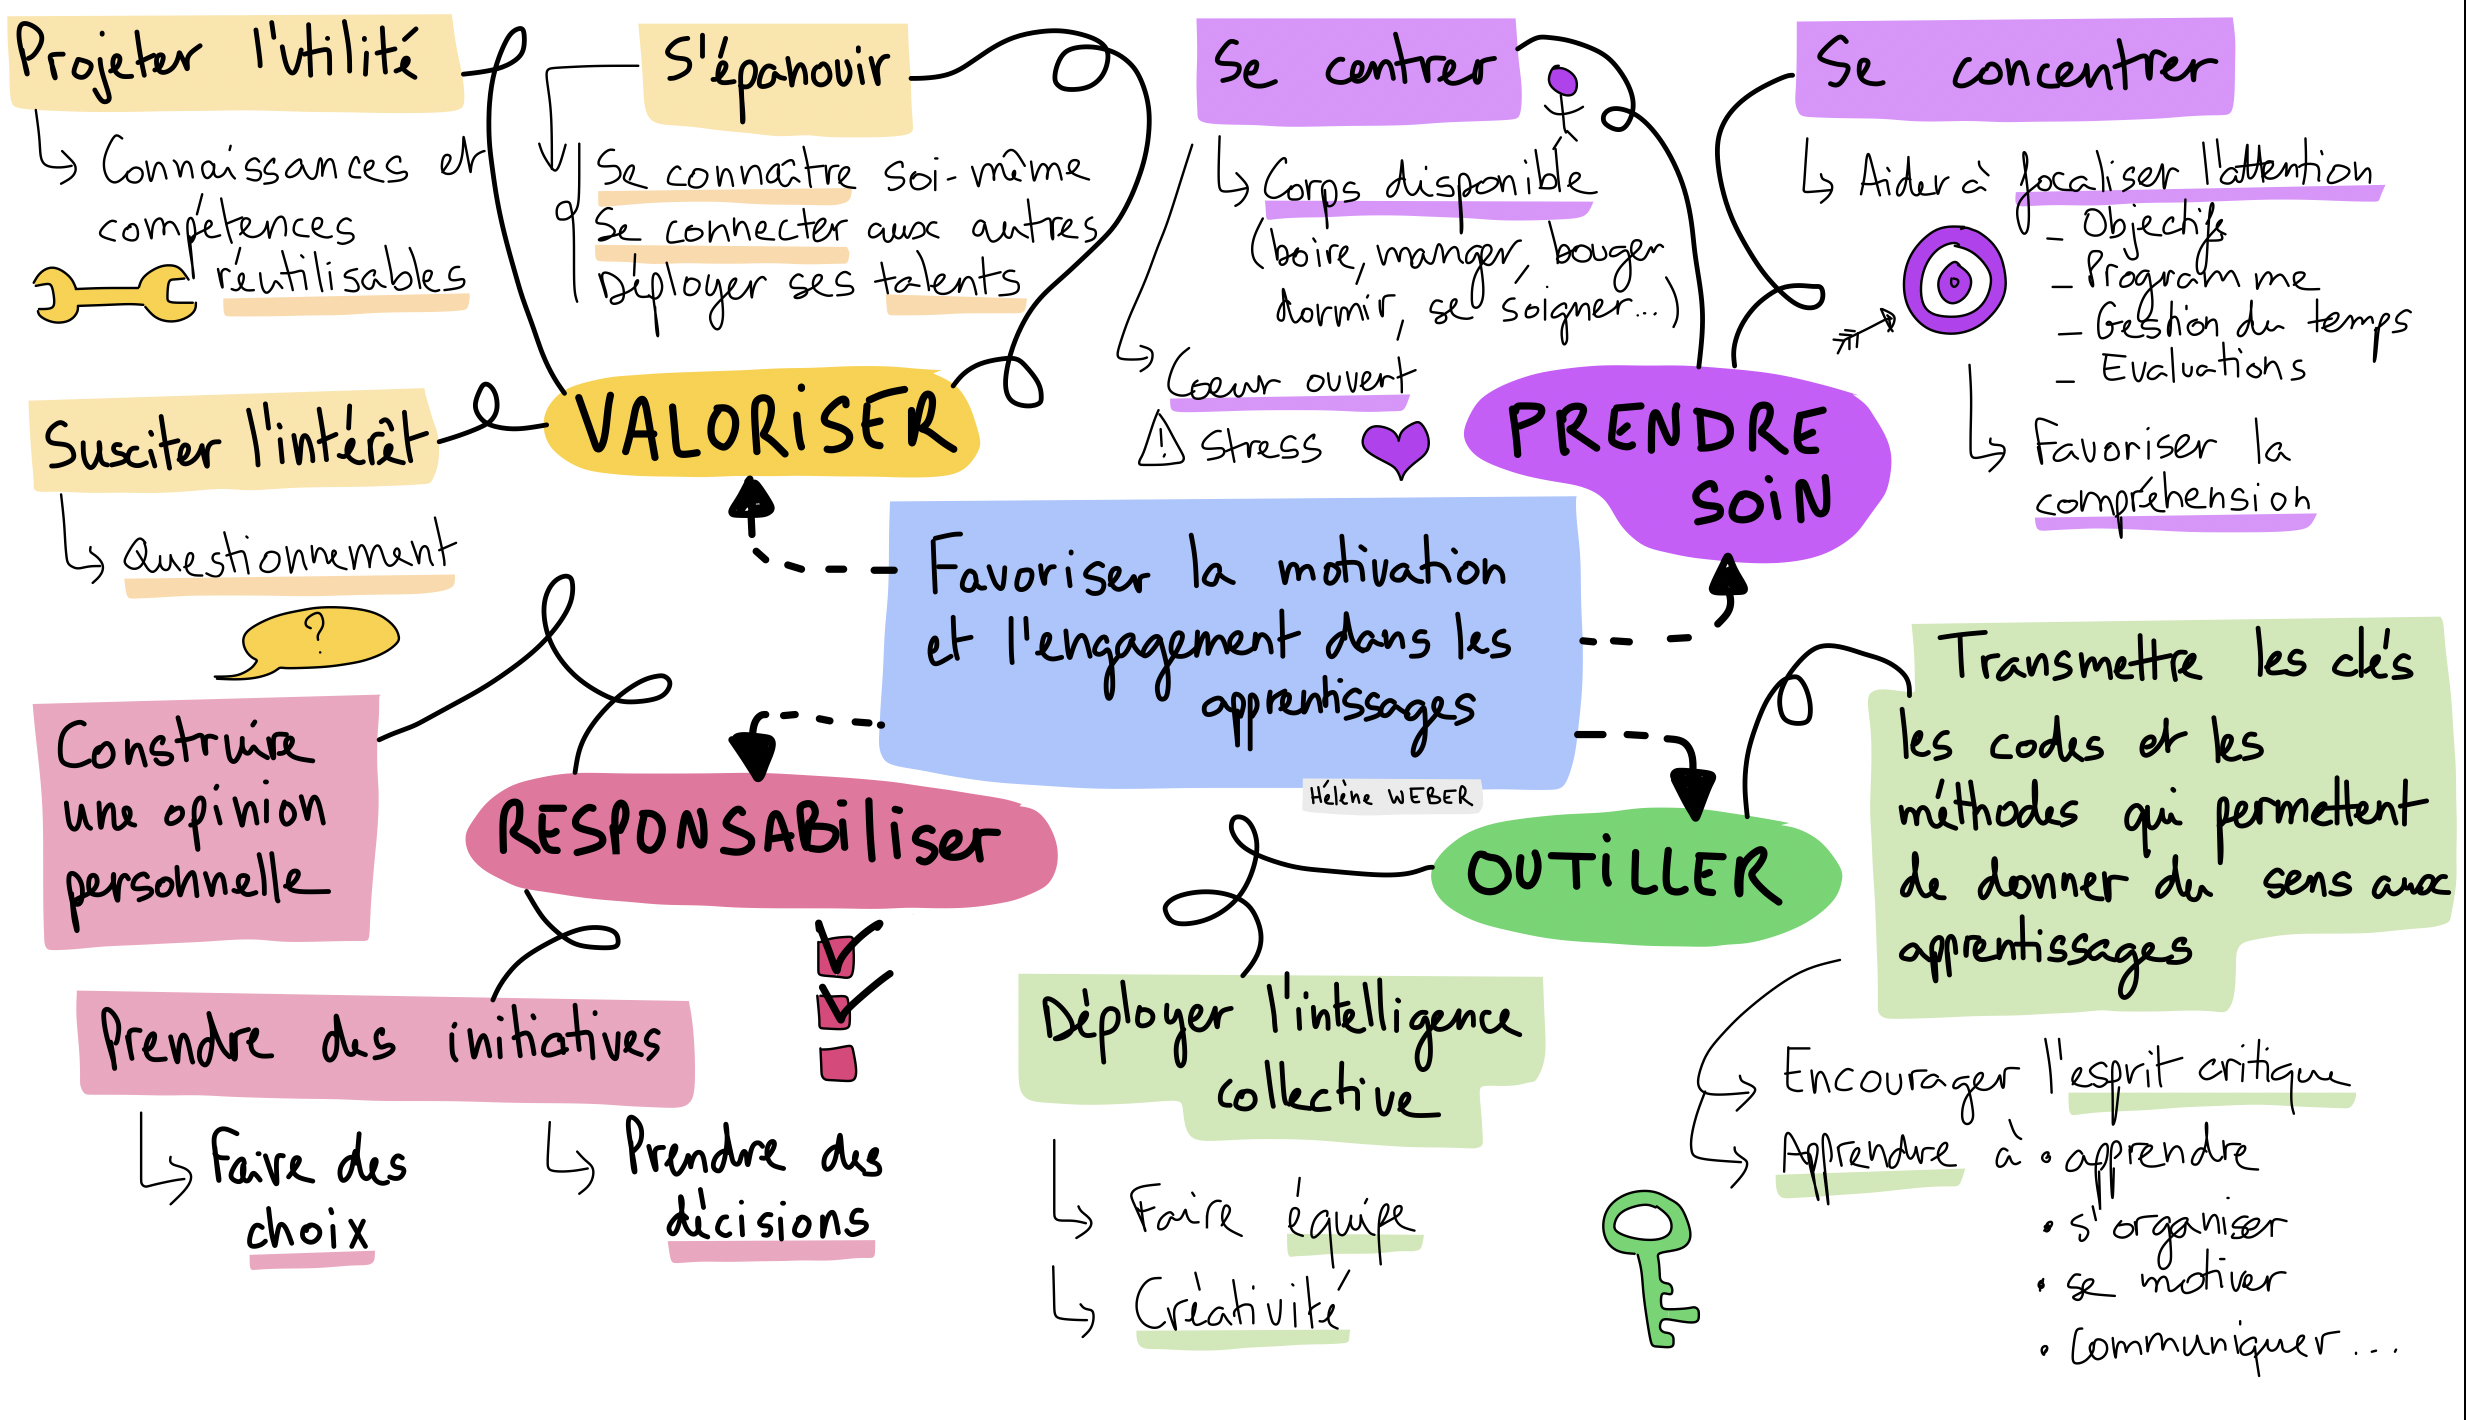 Projeter l'utilité
Connaissances et
compétences
réutilisables
S'épanouir
Se connaître soi-même
Se connecter aux autres
Déployer ses talents
Susciter l'intérêt
Questionnement
?
VALORiSER
Se centrer
Corps disponible
(boire, manger, bouger
dormir, se soigner...)
Coeur ouvert
! Stress
Se concentrer
Aider à focaliser l'attention
- Objectifs
- Programme
- Gestion du temps
- Evaluations
Favoriser la
compréhension
PRENDRE
SOiN
Favoriser la motivation
et l'engagement dans les
apprentissages
Hélène WEBER
RESPONSABiliser
Construire
une opinion
personnelle
Prendre des initiatives
Faire des
choix
Prendre des
décisions
OUTiLLER
Déployer l'intelligence
collective
Faire équipe
Créativité
Transmettre les clés
les codes et les
méthodes qui permettent
de donner du sens aux
apprentissages
Encourager l'esprit critique
Apprendre à • apprendre
• s'organiser
• se motiver
• communiquer...